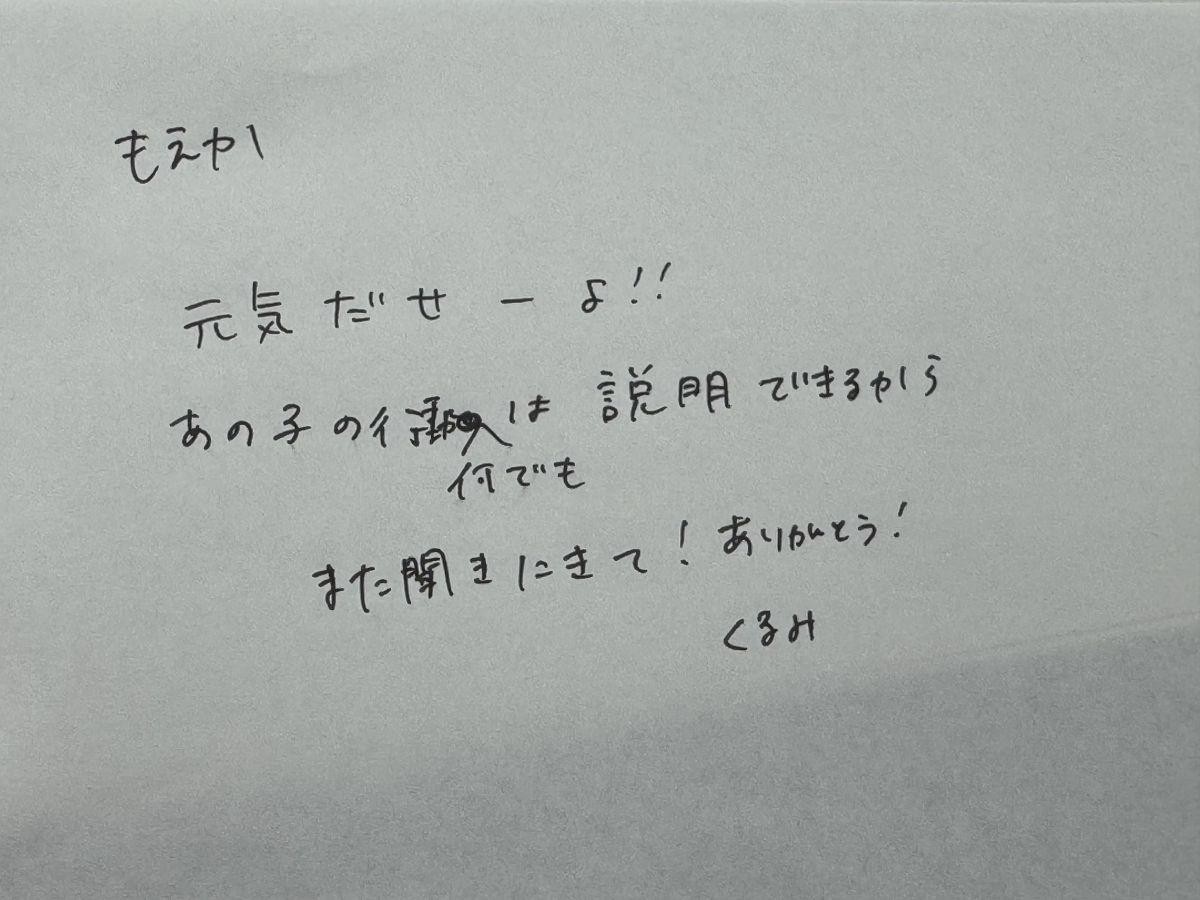 もえか
元気だせーよ!!
あの子の行動は説明できるから
何でも
また聞きにきて!ありがとう!
くるみ